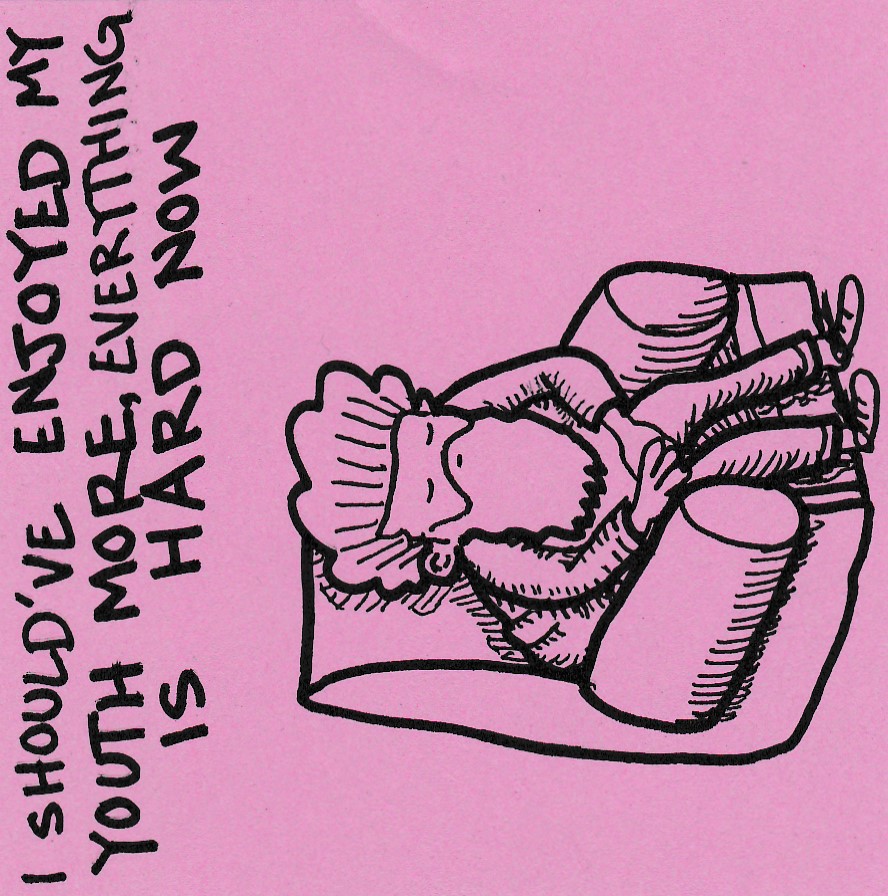 I SHOULD'VE ENJOYED MY
YOUTH MORE, EVERYTHING
IS HARD NOW